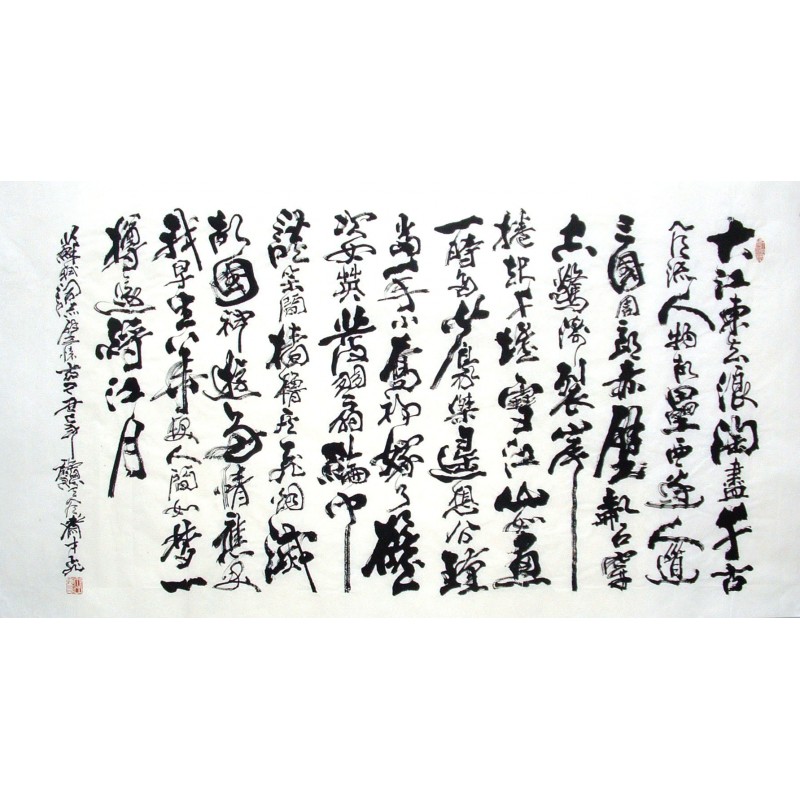 大江東去浪淘盡千古
風流人物故壘西邊人道
三國周郎赤壁亂石穿
空驚濤裂岸
捲起千堆雪江山如畫
一時多少豪傑遙想公瑾
當年小喬初嫁了雄
姿英發羽扇綸巾
談笑間檣櫓灰飛煙滅
故國神遊多情應笑
我早生華髮人間如夢一
樽還酹江月
蘇軾詞赤壁懷古